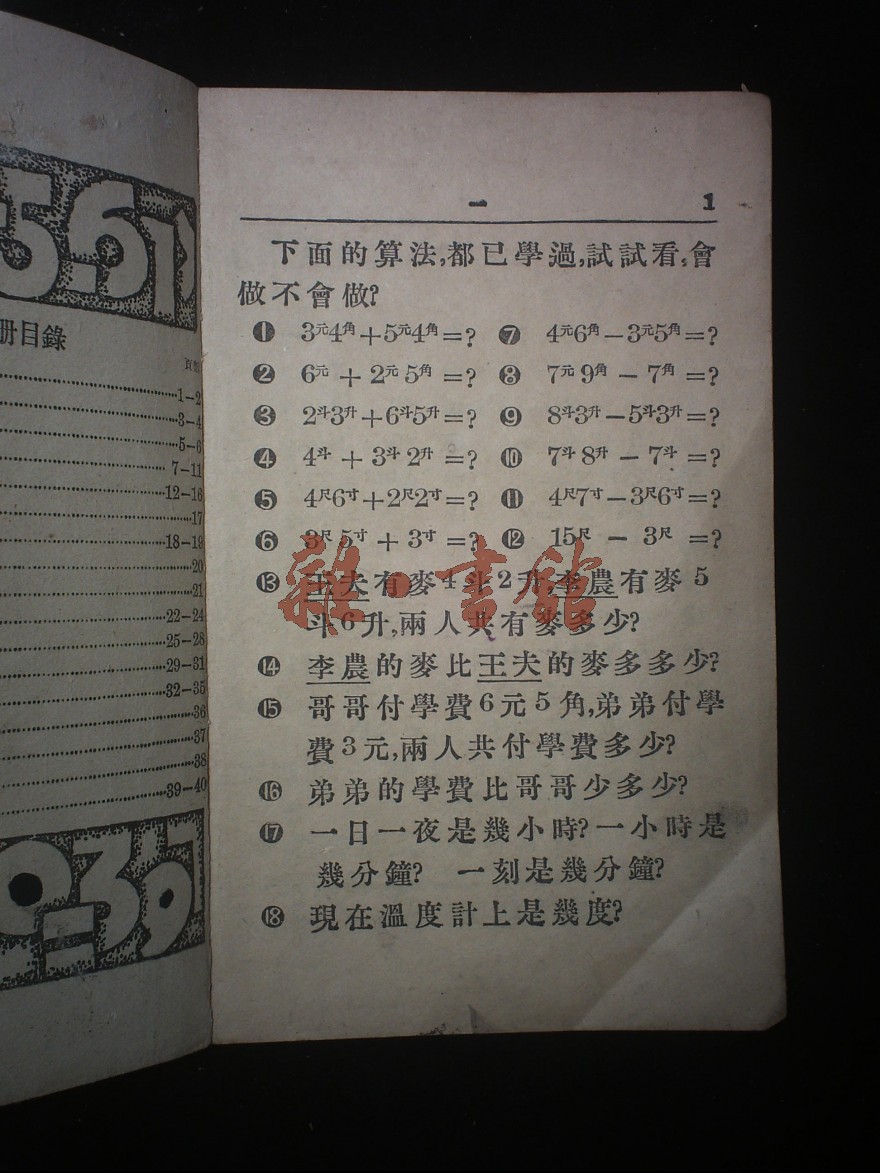 551
册目錄
頁數
1-2
3-4
5-6
7-11
12-16
17
18-19
20
21
22-24
25-28
29-31
32-35
36
37
38
39-40
一 1
下面的算法,都已學過,試試看,會
做不會做?
❶ 3元4角+5元4角=? ❼ 4元6角-3元5角=?
❷ 6元 + 2元5角 =? ❽ 7元9角 - 7角 =?
❸ 2斗3升+6斗5升=? ❾ 8斗3升-5斗3升=?
❹ 4斗 + 3斗2升 =? ❿ 7斗8升 - 7斗 =?
❺ 4尺6寸+2尺2寸=? ⓫ 4尺7寸-3尺6寸=?
❻ 3尺5寸 + 3寸 =? ⓬ 15尺 - 3尺 =?
⓭ 王夫有麥4斗2升,李農有麥5
斗6升,兩人共有麥多少?
⓮ 李農的麥比王夫的麥多多少?
⓯ 哥哥付學費6元5角,弟弟付學
費3元,兩人共付學費多少?
⓰ 弟弟的學費比哥哥少多少?
⓱ 一日一夜是幾小時?一小時是
幾分鐘? 一刻是幾分鐘?
⓲ 現在溫度計上是幾度?
雜·書館